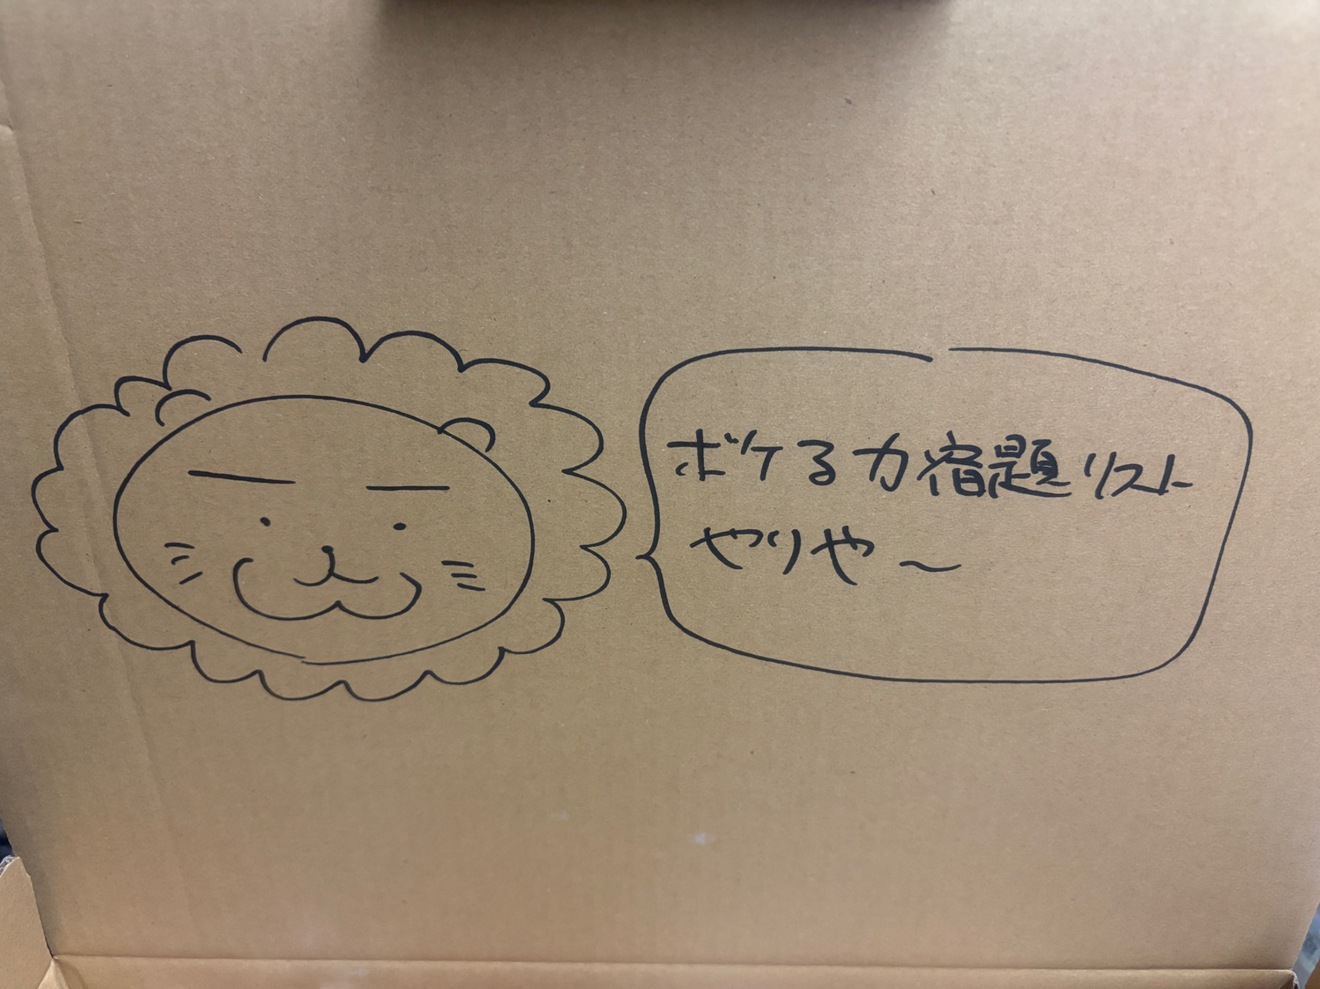 ボケる力宿題リスト
やりや〜